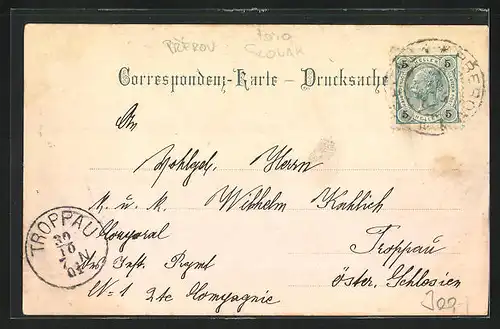 PŘEROV
Foto
SLOVAK
Correspondenz-Karte – Drucksache
5 5
HELLER
5 5
PREROV
An
Wohlgeb. Herrn
K. u. K. Wilhelm Kahlich
Corporal Troppau
des Inft. Regmt Öster. Schlesien
No 1 2te Compagnie
TROPPAU